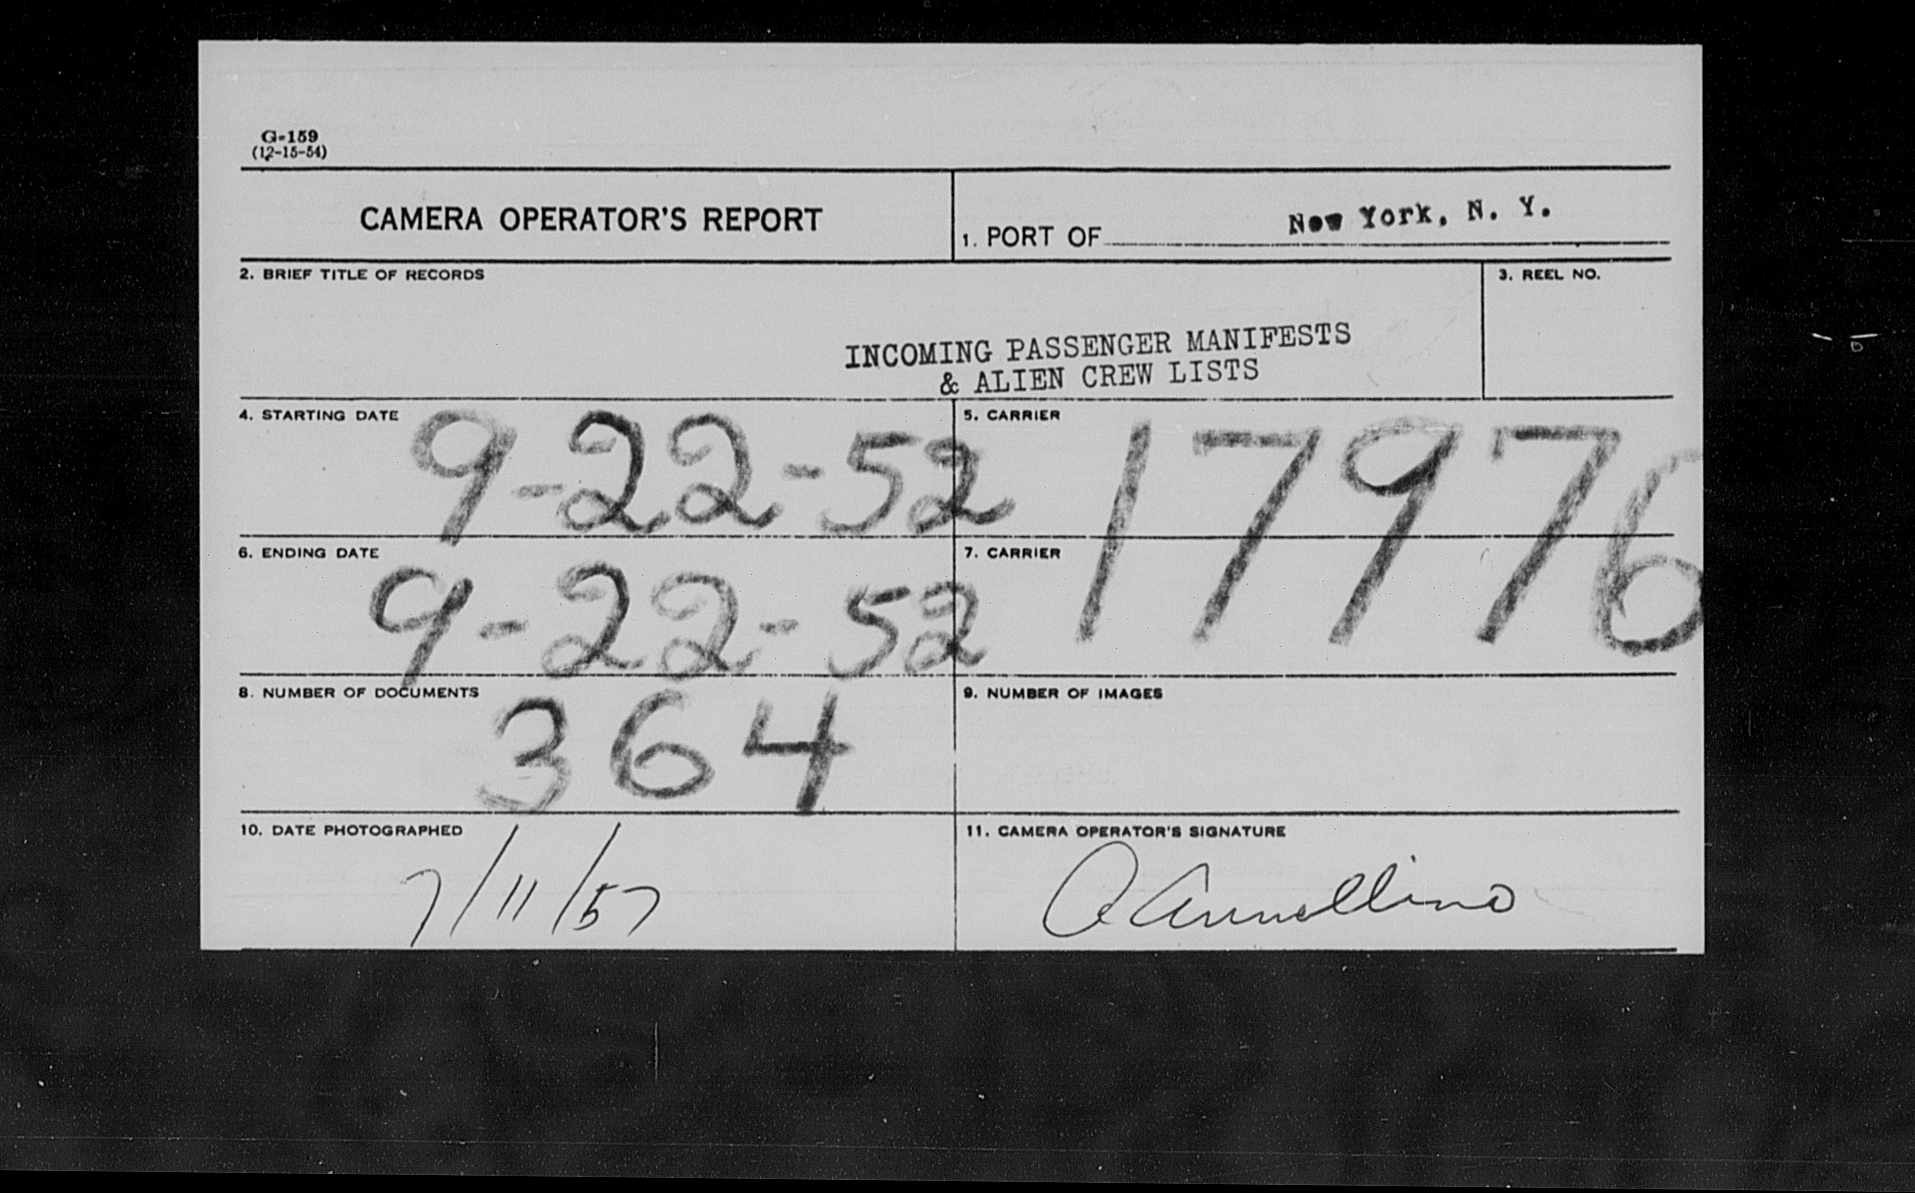 G-159
(12-15-54)
CAMERA OPERATOR'S REPORT
1. PORT OF New York, N. Y.
2. BRIEF TITLE OF RECORDS
3. REEL NO.
INCOMING PASSENGER MANIFESTS
& ALIEN CREW LISTS
4. STARTING DATE 9-22-52
5. CARRIER 17976
6. ENDING DATE 9-22-52
7. CARRIER
8. NUMBER OF DOCUMENTS 364
9. NUMBER OF IMAGES
10. DATE PHOTOGRAPHED 7/11/57
11. CAMERA OPERATOR'S SIGNATURE